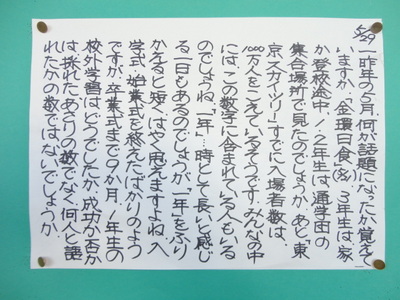 5/29
昨年の5月、何が話題になったか覚えて
いますか。「金環日食」(名)3年生は、家
か登校途中、1・2年生は、通学団の
集合場所で見たのでしょうか。あと「東
京スカイツリー」すでに入場者数は、
1000万人をこえているそうです。みんなの中
には、この数字に含まれている人もいる
のでしょうね。「一年」…時として長いと感じ
る一日もあるのでしょうが、「一年」をふり
かえると短く、はやく思えますよね。入
学式、始業式を終えたばかりのよう
ですが、卒業式まで9か月。1年生の
校外学習はどうでしたか。成功か否か
は、採れたあさりの数でなく、何人と語
れたかの数ではないでしょうか。